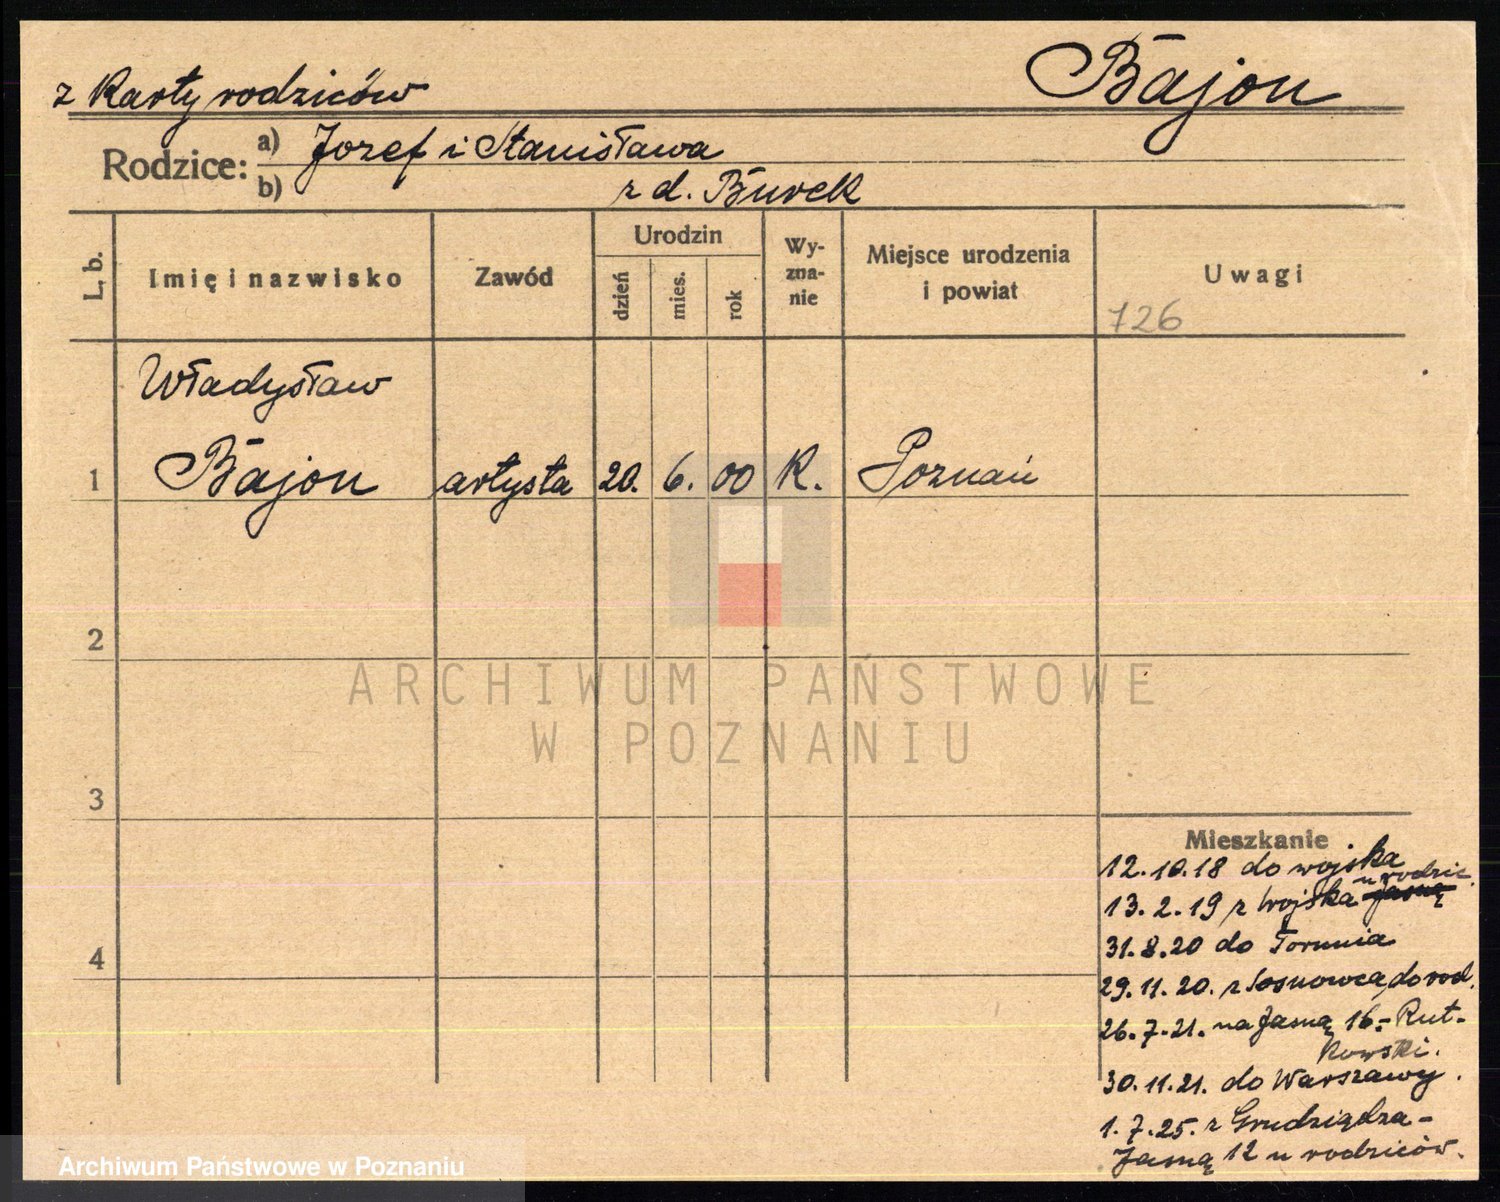 z karty rodziców
Bajon
Rodzice: a) Jozef i Stanisława
b) z d. Burek
L. b.
Imię i nazwisko
Zawód
Urodzin
dzień
mies.
rok
Wy-
zna-
nie
Miejsce urodzenia
i powiat
Uwagi
726
Władysław
1 Bajon artysta 20. 6. 00 K. Poznań
2
ARCHIWUM PAŃSTWOWE
W POZNANIU
3
Mieszkanie
12.10.18 do wojska
u rodzic.
13.2.19 z wojska Jasną
4
31.8.20 do Torunia
29.11.20. z Sosnowca, do rod.
26.7.21. na Jasną 16.- Rut-
kowski.
30.11.21. do Warszawy.
1.7.25. z Grudziądza -
Jasną 12 u rodziców.
Archiwum Państwowe w Poznaniu